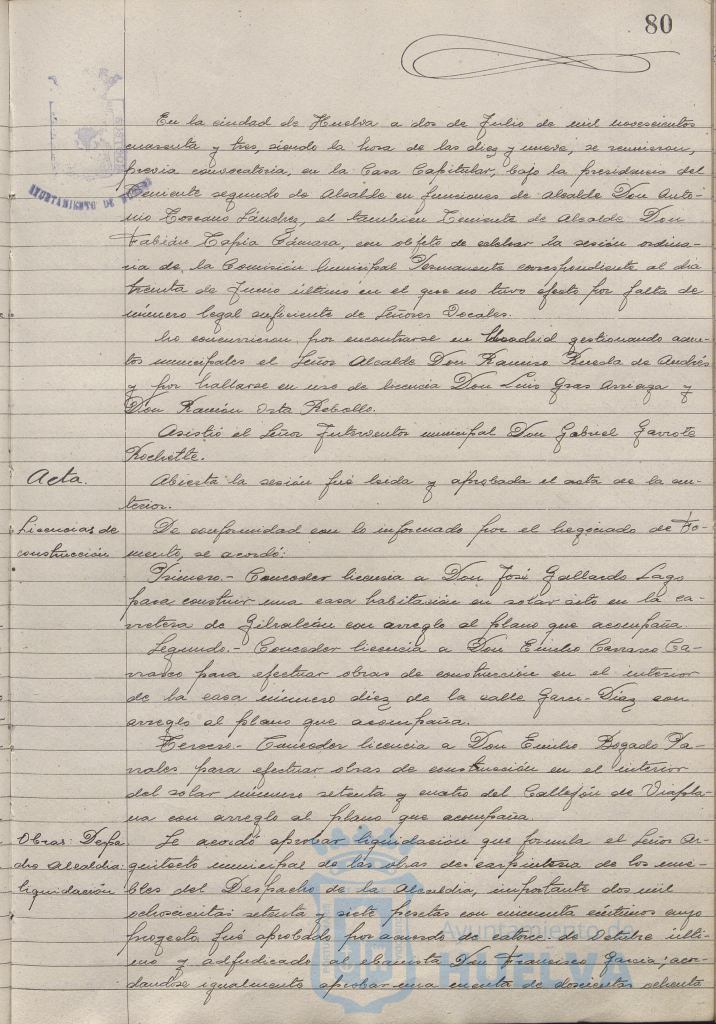 80
En la ciudad de Huelva a dos de Julio de mil novecientos
cuarenta y tres, siendo la hora de las diez y nueve, se reunieron,
previa convocatoria, en la Casa Capitular, bajo la presidencia del
Teniente segundo de Alcalde en funciones de alcalde Don Anto-
nio Toscano Sánchez, el tambien Teniente de Alcalde Don
Fabián Tapia Cámara, con objeto de celebrar la sesión ordina-
ria de la Comisión Municipal Permanente correspondiente al dia
treinta de Junio último en el que no tuvo efecto por falta de
número legal suficiente de Señores Vocales.
No concurrieron por encontrarse en Madrid gestionando asun-
tos municipales el Señor Alcalde Don Ramiro Rueda de Andrés
y por hallarse en uso de licencia Don Luis Gras Arreaga y
Don Ramón Orta Rebollo.
Asistió el Señor Interventor municipal Don Gabriel Garrote
Rochette.
Acta.
Abierta la sesión fué leida y aprobada el acta de la an-
terior.
Licencias de
construcción
De conformidad con lo informado por el Negociado de Fo-
mento, se acordó:
Primero.- Conceder licencia a Don José Gallardo Lago
para construir una casa habitación en solar sito en la ca-
rretera de Gibraleón con arreglo al plano que acompaña.
Segundo.- Conceder licencia a Don Emilio Carrasco Ca-
rrasco para efectuar obras de construcción en el interior
de la casa número diez de la calle Garci-Diaz con
arreglo al plano que acompaña.
Tercero.- Conceder licencia a Don Emilio Bogado Pa-
rrales para efectuar obras de construcción en el interior
del solar número setenta y cuatro del Callejón de Viapla-
na con arreglo al plano que acompaña.
Obras: Despa-
cho Alcaldia:
liquidación
Se acordó aprobar liquidación que formula el Señor Ar-
quitecto municipal de las obras de carpinteria de los mue-
bles del Despacho de la Alcaldia, importante dos mil
ochocientas setenta y siete pesetas con cincuenta céntimos cuyo
proyecto fué aprobado por acuerdo de catorce de Octubre últi-
mo y adjudicado al ebanista Don Francisco Garcia; acor-
dandose igualmente aprobar una cuenta de doscientas ochenta
AYUNTAMIENTO DE HUELVA
Ayuntamiento de
HUELVA